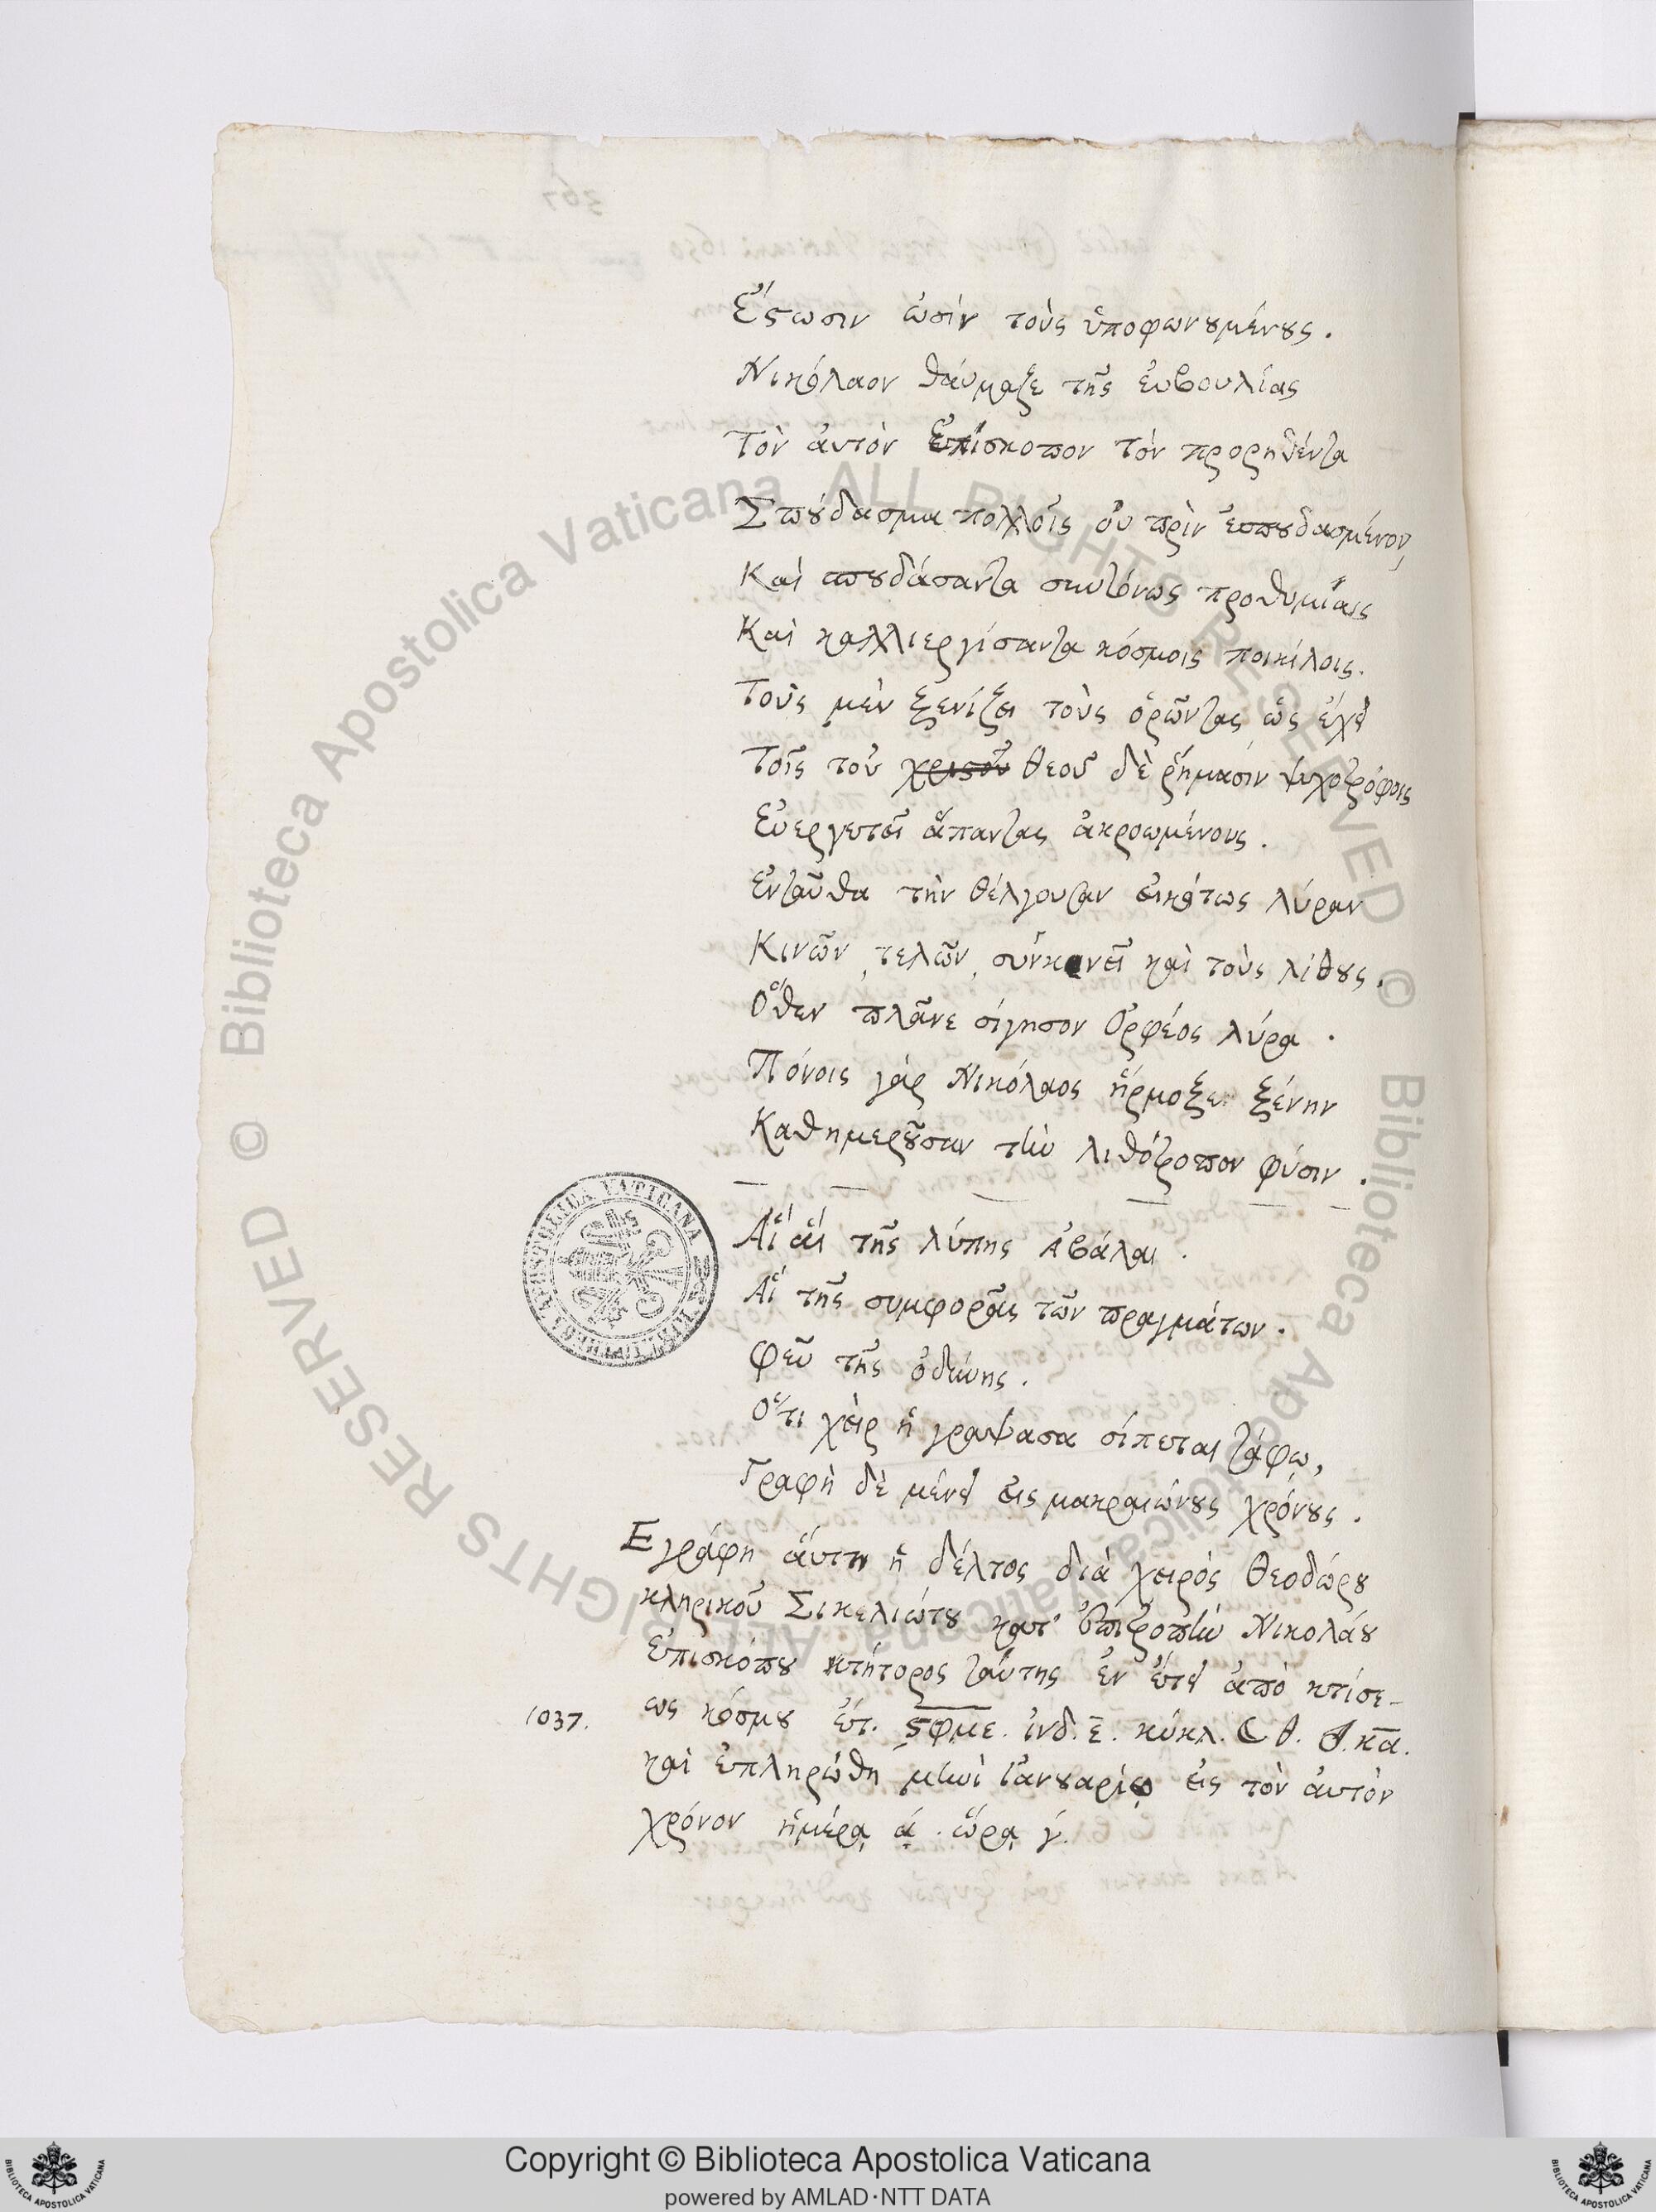 Ἕστωσιν ὠσὶν τοὺς ὑποφωνουμένους.
Νικόλαον θαύμαζε τῆς εὐβουλίας
Τὸν αὐτὸν Ἐπίσκοπον τὸν προρηθέντα
Σπούδασμα πολλοῖς οὐ πρὶν ἐσπουδασμένον,
Καὶ σπουδάσαντα συντόνως προθυμίαις
Καὶ καλλιεργίσαντα κόσμοις ποικίλοις.
Τοὺς μὲν ξενίζει τοὺς ὁρῶντας ὡς ἔχει
Τοῖς τοῦ χριστοῦ θεοῦ δὲ ῥήμασιν ψυχοτρόφοις
Εὐεργετεῖ ἅπαντας ἀκροωμένους.
Ἐνταῦθα τὴν θέλγουσαν εἰκότως λύραν
Κινῶν, τελῶν, συνκινεῖ καὶ τοὺς λίθους.
Ὅθεν πλᾶνε σίγησον Ὀρφέος λύρα.
Πόνοις γὰρ Νικόλαος ἥρμοξε ξένην
Καθημεροῦσαν τὴν λιθότροπον φύσιν.
Αἲ αἲ τῆς λύπης ἀβάλαι.
Αἲ τῆς συμφορᾶς τῶν πραγμάτων.
Φεῦ τῆς ὀδύνης.
Ὅτι χεὶρ ἡ γραψασα σίπεται τάφῳ,
Γραφὴ δὲ μένει εἰς μακραιώνους χρόνους.
Εγράφη αὕτη ἡ δέλτος διὰ χειρὸς Θεοδώρου
κληρικοῦ Σικελιώτου κατ' ἐπιτροπὴν Νικολάου
Ἐπισκόπου κτήτορος ταύτης ἐν ἔτει ἀπὸ κτίσε-
1037. ως κόσμου ἔτ. ϛφμε. ἰνδ. ε. κύκλ. ☾ θ. κα.
καὶ ἐπληρώθη μηνὶ ἰανουαρίῳ εἰς τὸν αὐτὸν
χρόνον ἡμέρᾳ ά. ὥρᾳ γ.
BIBLIOTHECA APOSTOLICA VATICANA
© Biblioteca Apostolica Vaticana ALL RIGHTS RESERVED
Copyright © Biblioteca Apostolica Vaticana
powered by AMLAD·NTT DATA
BIBLIOTECA APOSTOLICA VATICANA
BIBLIOTECA APOSTOLICA VATICANA